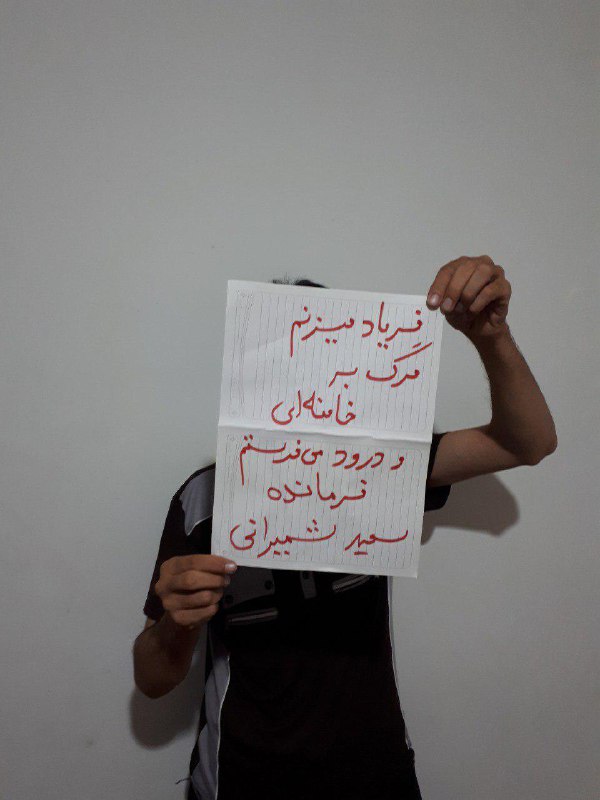 فریاد میزنم
مرگ بر
خامنه‌ای
و درود می‌فرستم
فرمانده
سعید شمیرانی